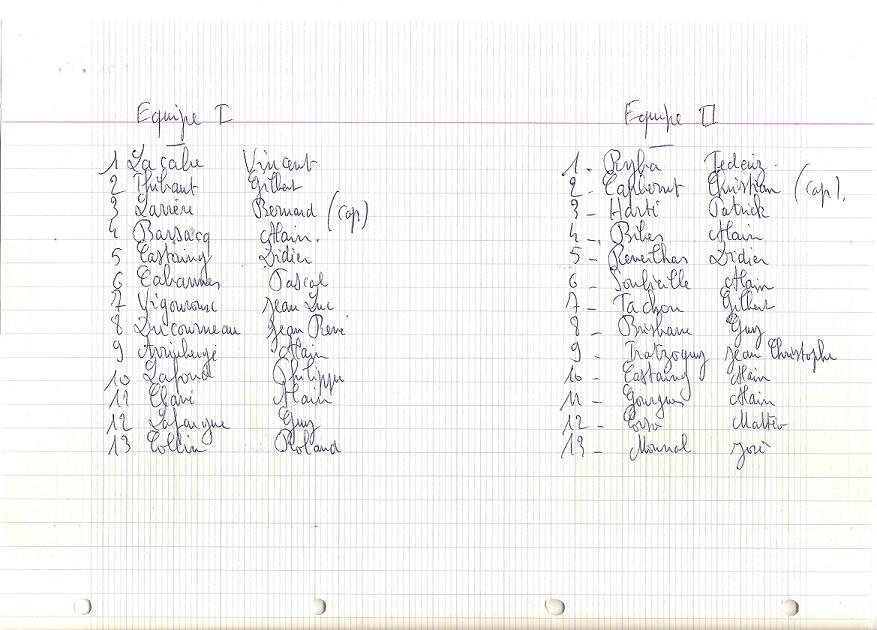 Equipe I
1 Lacabe Vincent
2 Thibaut Gilbert
3 Larrère Bernard (cap)
4 Barsacq Alain.
5 Castaing Didier
6 Cabannes Pascal
7 Vigouroux Jean Luc
8 Ducourneau Jean René
9 Alain
10 Lafond Philippe
11 Clavé Alain
12 Lafargue Guy
13 Collin Roland
Equipe II
1. Ryba
2 - Christian (cap).
3 - Harté Patrick
4 - Bibes Alain
5 - Didier
6 - Alain
7 - Tachon Gilbert
8 - Brisbare Guy
9 - Iratzoquy Jean Christophe
10 - Castaing Alain
11 - Gourgues Alain
12 - Corso Mattéo
13 - José